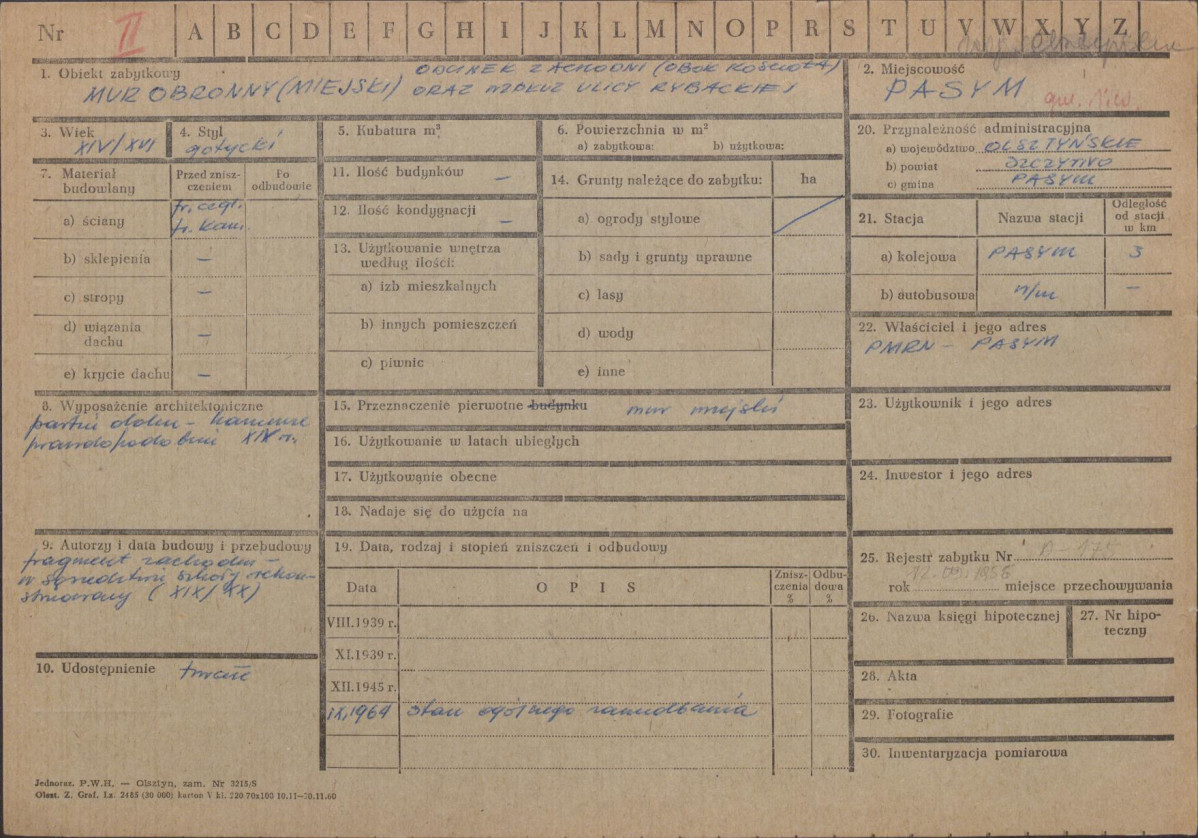 Nr II A B C D E F G H I J K L M N O P R S T U V W X Y Z
1. Obiekt zabytkowy
MUR OBRONNY (MIEJSKI) ODCINEK ZACHODNI (OBOK KOŚCIOŁA)
ORAZ WZDŁUŻ ULICY RYBACKIEJ
2. Miejscowość
PASYM
3. Wiek
XIV/XVI
4. Styl
gotycki
5. Kubatura m³
6. Powierzchnia w m²
a) zabytkowa: b) użytkowa:
7. Materiał budowlany
Przed znisz-
czeniem
Po
odbudowie
a) ściany
fr. cegł.
fr. kam.
b) sklepienia –
c) stropy –
d) wiązania
dachu –
e) krycie dachu –
8. Wyposażenie architektoniczne
partii dolne – kamienne
prawdopodobnie XIV w.
9. Autorzy i data budowy i przebudowy
fragment zachodni –
w sąsiedztwie szkoły rekon-
struowany (XIX/XX)
10. Udostępnienie
11. Ilość budynków –
12. Ilość kondygnacji –
13. Użytkowanie wnętrza
według ilości:
a) izb mieszkalnych
b) innych pomieszczeń
c) piwnic
14. Grunty należące do zabytku: ha
a) ogrody stylowe
b) sady i grunty uprawne
c) lasy
d) wody
e) inne
15. Przeznaczenie pierwotne budynku mur miejski
16. Użytkowanie w latach ubiegłych
17. Użytkowanie obecne
18. Nadaje się do użycia na
19. Data, rodzaj i stopień zniszczeń i odbudowy
Data OPIS
Znisz-
czenia
%
Odbu-
dowa
%
VIII.1939 r.
XI.1939 r.
XII.1945 r.
IX.1964 stan ogólnego zaniedbania
20. Przynależność administracyjna
a) województwo OLSZTYŃSKIE
b) powiat SZCZYTNO
c) gmina PASYM
21. Stacja Nazwa stacji
Odległość
od stacji
w km
a) kolejowa PASYM 3
b) autobusowa n/m –
22. Właściciel i jego adres
PMRN – PASYM
23. Użytkownik i jego adres
24. Inwestor i jego adres
25. Rejestr zabytku Nr A-175
rok 1955 miejsce przechowywania
26. Nazwa księgi hipotecznej
27. Nr hipo-
teczny
28. Akta
29. Fotografie
30. Inwentaryzacja pomiarowa
Jednoraz. P.W.H. — Olsztyn, zam. Nr 3215/S
Olszt. Z. Graf. Lz. 2485 (30 000) karton V kl. 220 70x100 10.11—30.11.60